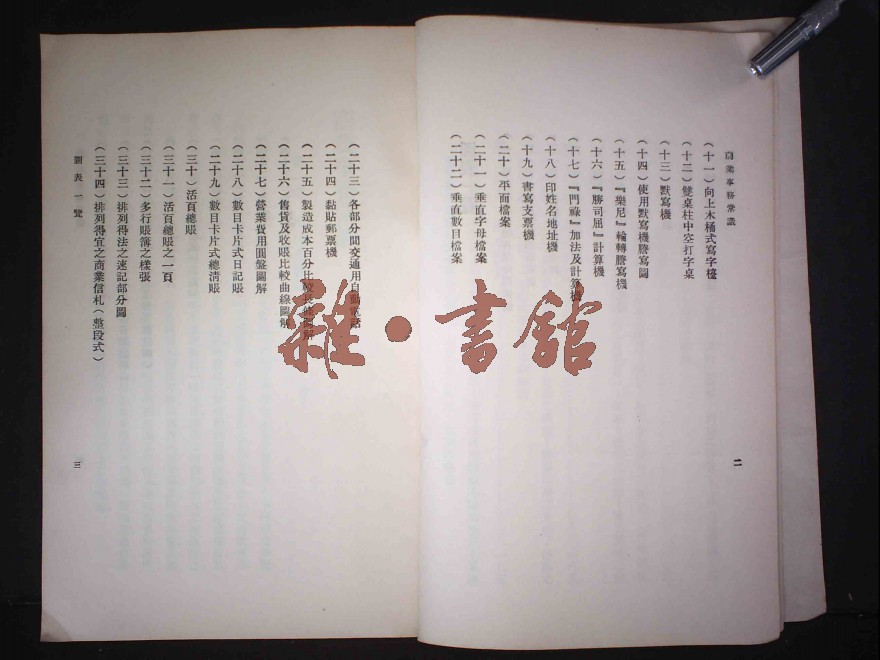 商業事務常識
(十一)向上木桶式寫字檯
(十二)雙桌柱中空打字桌
(十三)默寫機
(十四)使用默寫機謄寫圖
(十五)『樂尼』輪轉謄寫機
(十六)『勝司屈』計算機
(十七)『門祿』加法及計算機
(十八)印姓名地址機
(十九)書寫支票機
(二十)平面檔案
(二十一)垂直字母檔案
(二十二)垂直數目檔案
二
(二十三)各部分間交通用自動電話
(二十四)黏貼郵票機
(二十五)製造成本百分比較長條圖解
(二十六)售貨及收賬比較曲線圖解
(二十七)營業費用圓盤圖解
(二十八)數目卡片式日記賬
(二十九)數目卡片式總清賬
(三十)活頁總賬
(三十一)活頁總賬之一頁
(三十二)多行賬簿之樣張
(三十三)排列得法之速記部分圖
(三十四)排列得宜之商業信札(整段式)
圖表一覽
三
雜·書館